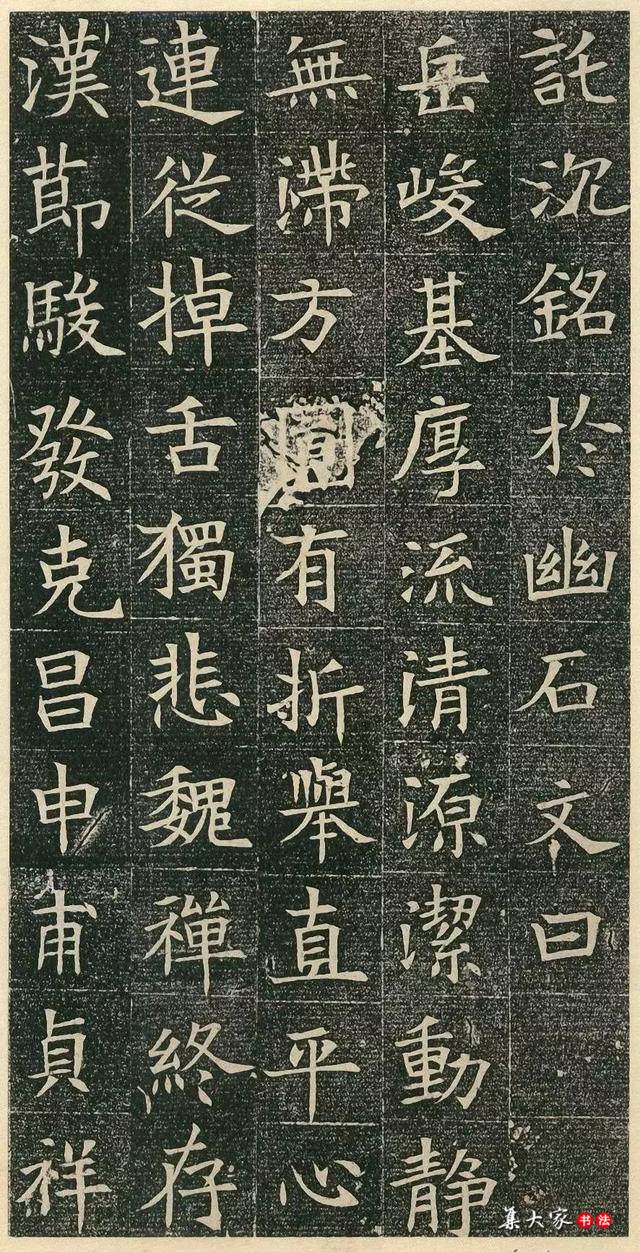 託沉銘於幽石文曰
岳峻基厚流清源潔動静
無滯方圓有折舉直平心
連從掉舌獨悲魏禪終存
漢節駿發克昌申甫貞祥
集大家书法